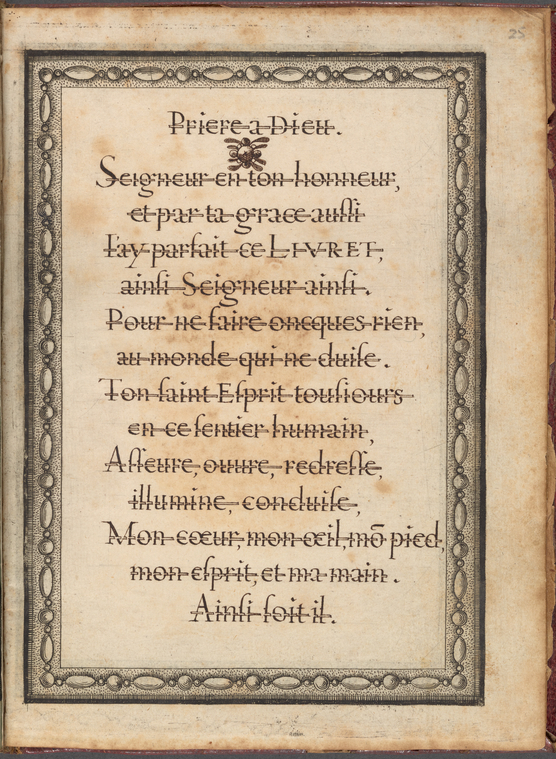 25
Priere a Dieu.
Seigneur en ton honneur,
et par ta grace auſſi
I'ay parfait ce LIVRET,
ainſi Seigneur ainſi.
Pour ne faire oncques rien,
au monde qui ne duiſe.
Ton ſaint Eſprit touſiours
en ce ſentier humain,
Aſſeure, ouure, redreſſe,
illumine, conduiſe,
Mon cœur, mon œil, mõ pied,
mon eſprit, et ma main.
Ainſi ſoit il.